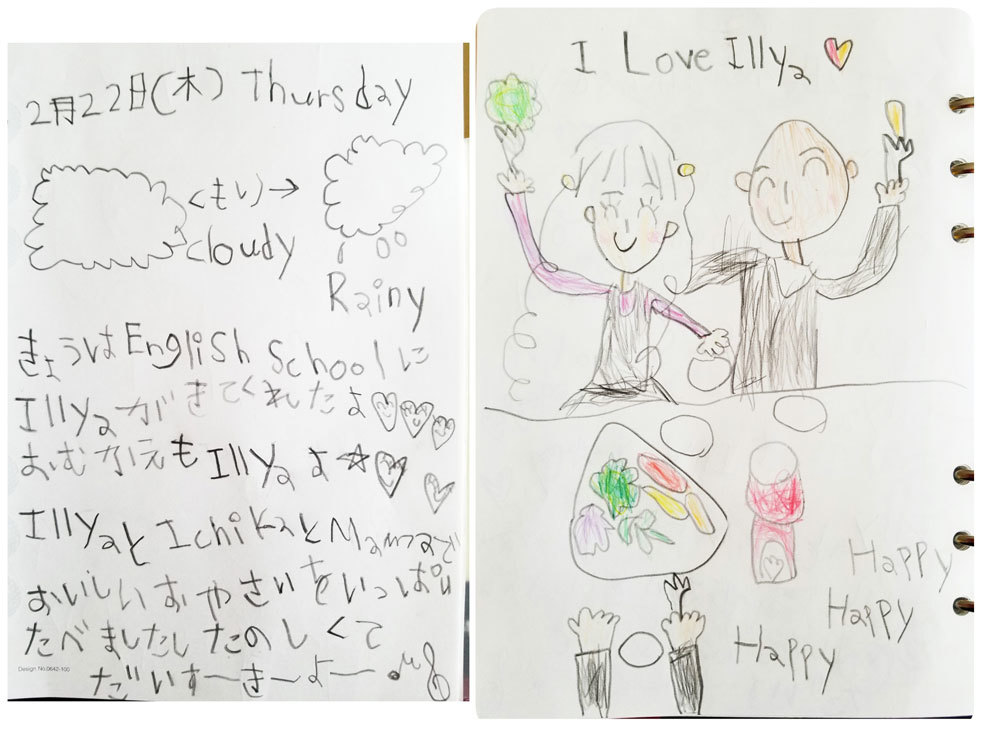 2月22日(木) Thursday
くもり→
cloudy
Rainy
きょうは English School に
Illyaがきてくれたよ
おむかえも Illyaよ
IllyaとIchikaとMamaで
おいしいおやさいをいっぱい
たべましたし たのしくて
だいすーきーよー
Design No.0642-100
I Love Illya
Happy
Happy
Happy